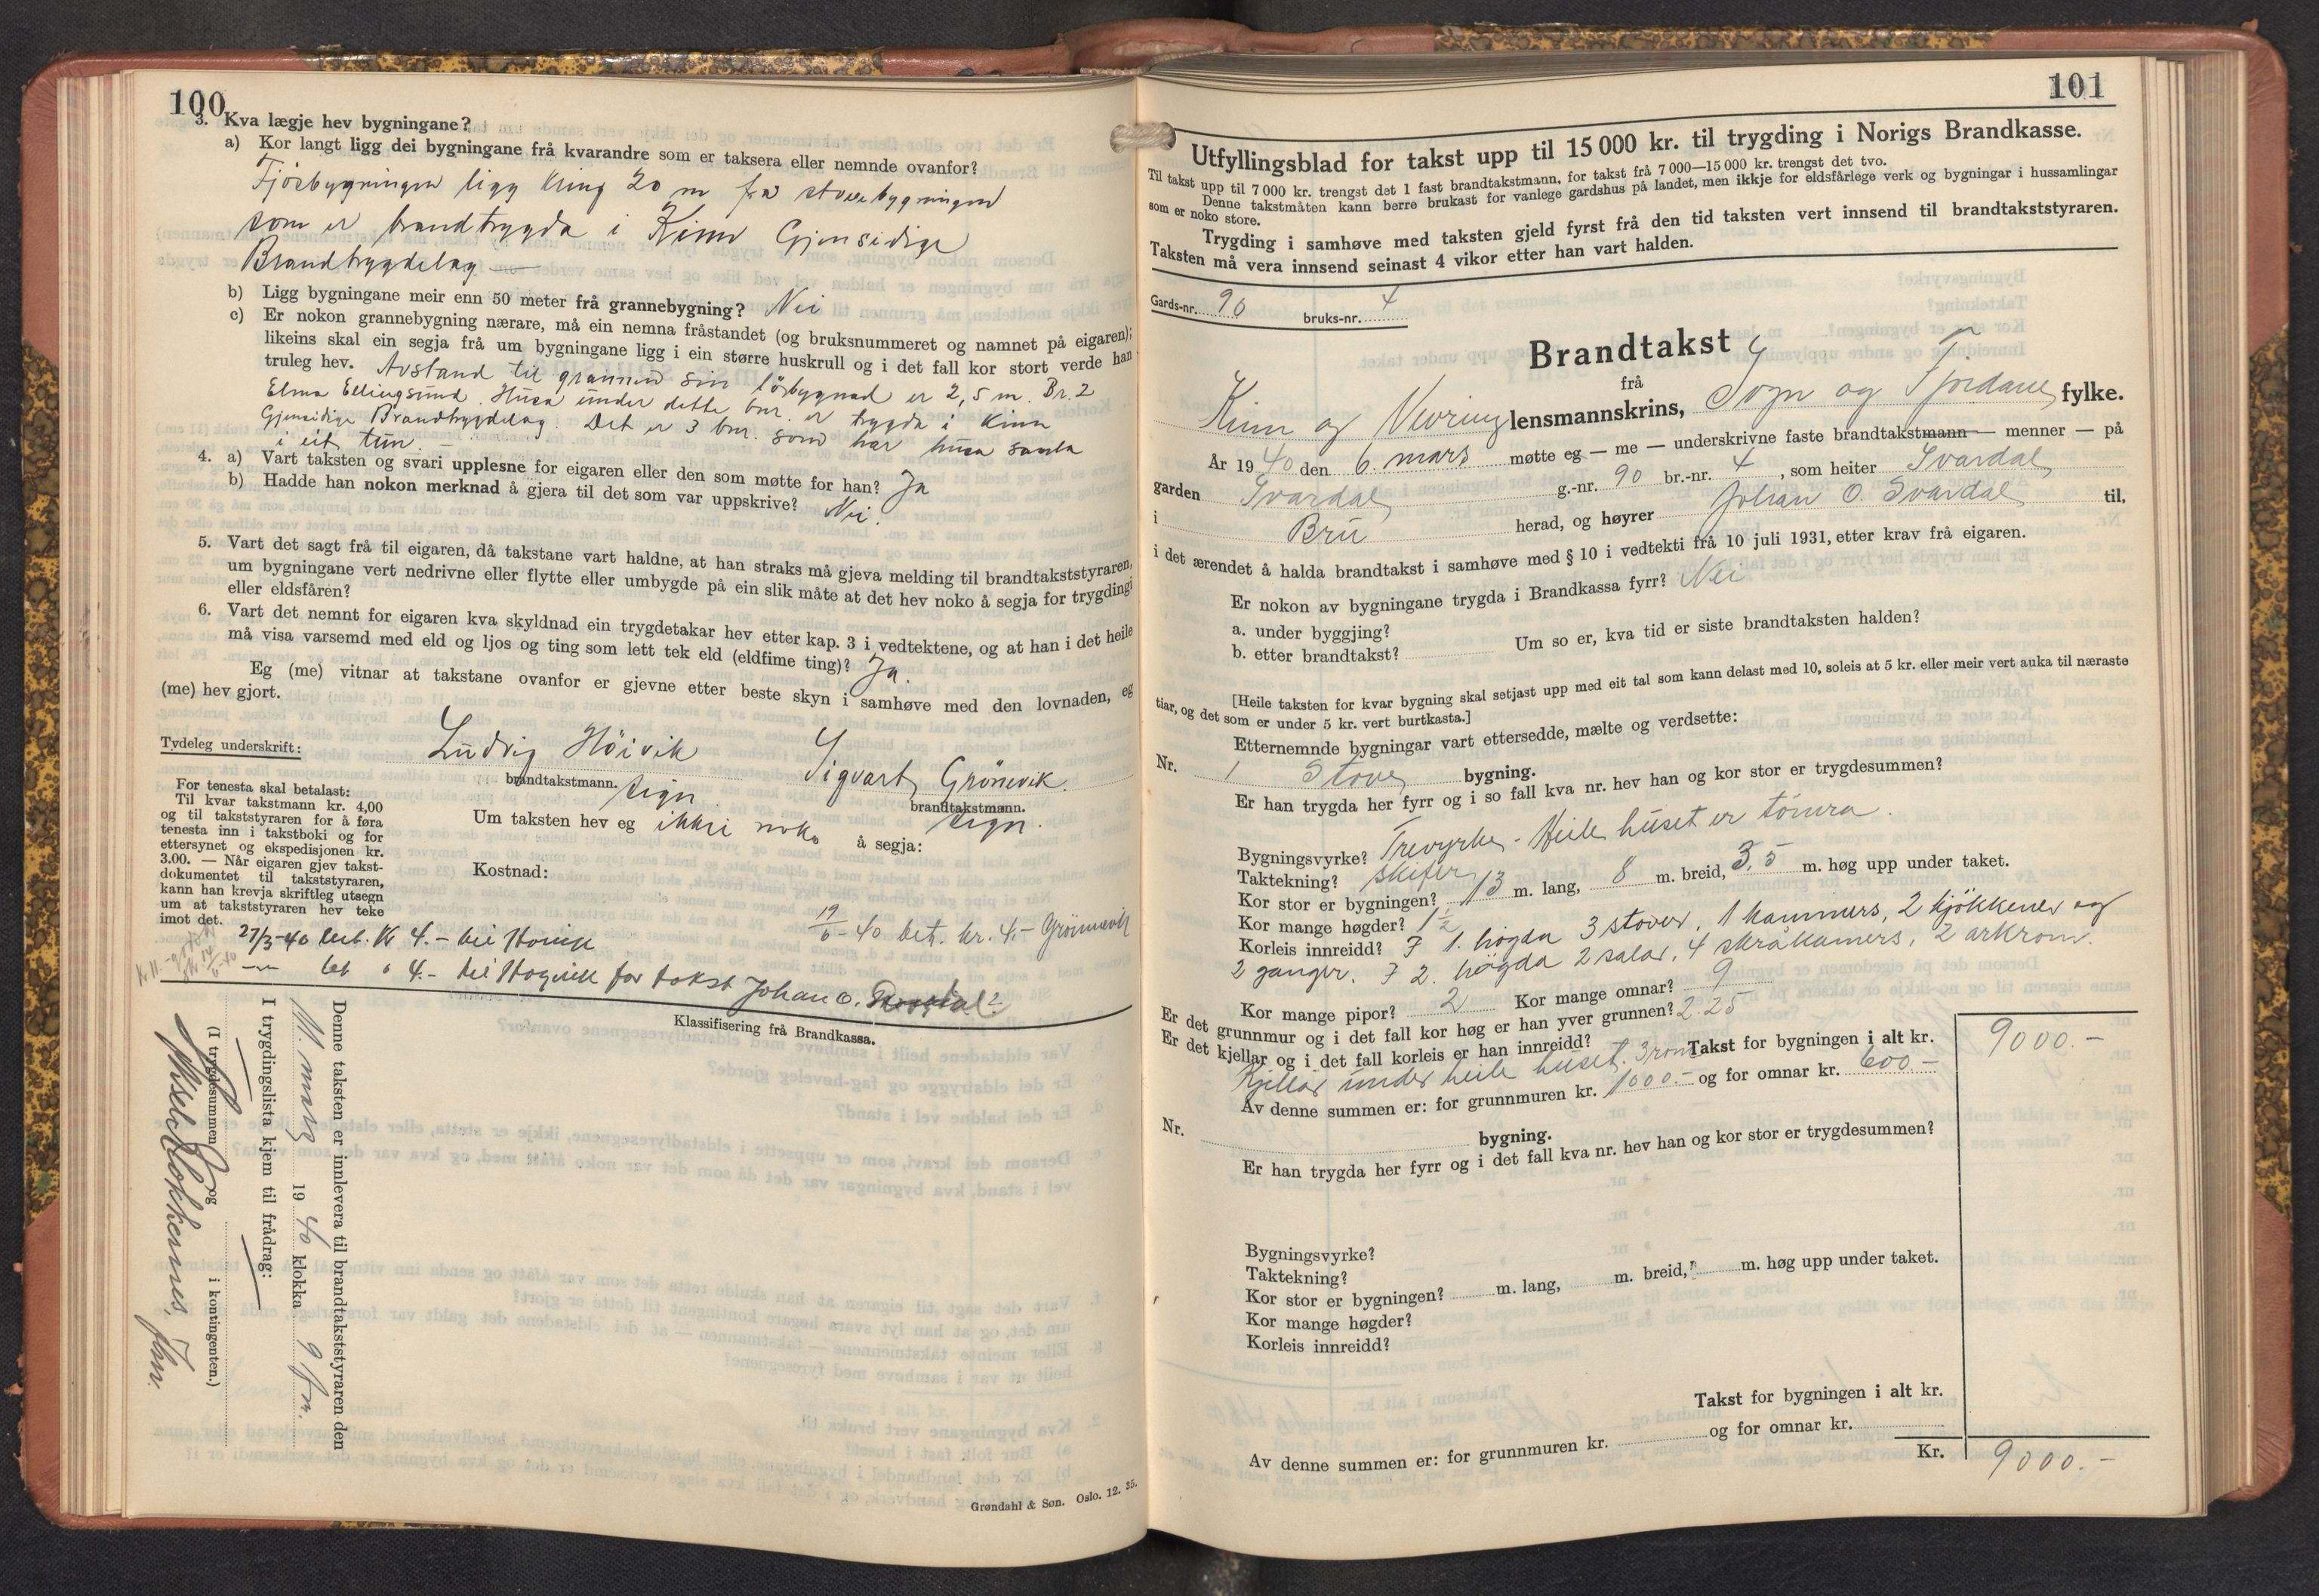 100
3. Kva lægje hev bygningane?
a) Kor langt ligg dei bygningane frå kvarandre som er taksera eller nemnde ovanfor?
Fjösbygningen ligg kring 20 m fra stovebygningen
som er brandtrygda i Kinn Gjensidige
Brandtrygdelag —
b) Ligg bygningane meir enn 50 meter frå grannebygning? Nei
c) Er nokon grannebygning nærare, må ein nemna fråstandet (og bruksnummeret og namnet på eigaren);
likeins skal ein segja frå um bygningane ligg i ein større huskrull og i det fall kor stort verde han
truleg hev. Avstand til grannen sin lösbygnad er 2,5 m. Br. 2
Elma Ellingsund. Husa under dette bnr. er trygda i Kinn
Gjensidige Brandtrygdelag. Det er 3 bnr. som har husa samla
i eit tun —
4. a) Vart taksten og svari upplesne for eigaren eller den som møtte for han? Ja
b) Hadde han nokon merknad å gjera til det som var uppskrive? Nei.
5. Vart det sagt frå til eigaren, då takstane vart haldne, at han straks må gjeva melding til brandtakststyraren,
um bygningane vert nedrivne eller flytte eller umbygde på ein slik måte at det hev noko å segja for trygdingi
eller eldsfåren?
6. Vart det nemnt for eigaren kva skyldnad ein trygdetakar hev etter kap. 3 i vedtektene, og at han i det heile
må visa varsemd med eld og ljos og ting som lett tek eld (eldfime ting)? Ja.
Eg (me) vitnar at takstane ovanfor er gjevne etter beste skyn i samhøve med den lovnaden, eg
(me) hev gjort.
Tydeleg underskrift: Ludvig Höivik Sigvart Grönevik.
brandtakstmann. sign. brandtakstmann. sign.
For tenesta skal betalast:
Til kvar takstmann kr. 4,00
og til takststyraren for å føra
tenesta inn i takstboki og for
ettersynet og ekspedisjonen kr.
3.00. — Når eigaren gjev takst-
dokumentet til takststyraren,
kann han krevja skriftleg utsegn
um at takststyraren hev teke
imot det.
Um taksten hev eg ikkje noko å segja:
Kostnad:
19/6-40 bet. kr. 4.- Grönevik
27/3-40 bet. kr 4.- til Høivik
— bet " 4.- til Høgvik for takst Johan O.
Klassifisering frå Brandkassa.
Denne taksten er innlevera til brandtakststyraren den
11. mars 1940 klokka 9 fm.
I trygdingslista kjem til frådrag:
(I trygdesummen og i kontingenten.)
Grøndahl & Søn. Oslo. 12. 35.
101
Utfyllingsblad for takst upp til 15 000 kr. til trygding i Norigs Brandkasse.
Til takst upp til 7 000 kr. trengst det 1 fast brandtakstmann, for takst frå 7 000—15 000 kr. trengst det tvo.
Denne takstmåten kann berre brukast for vanlege gardshus på landet, men ikkje for eldsfårlege verk og bygningar i hussamlingar
som er noko store.
Trygding i samhøve med taksten gjeld fyrst frå den tid taksten vert innsend til brandtakststyraren.
Taksten må vera innsend seinast 4 vikor etter han vart halden.
Gards-nr. 90 bruks-nr. 4
Brandtakst
frå
Kinn og Nevring lensmannskrins, Sogn og Fjordane fylke.
År 1940 den 6. mars møtte eg — me — underskrivne faste brandtakstmann — menner — på
garden Svardal g.-nr. 90 br.-nr. 4, som heiter Svardal
i Bru herad, og høyrer Johan O. Svardal til,
i det ærendet å halda brandtakst i samhøve med § 10 i vedtekti frå 10 juli 1931, etter krav frå eigaren.
Er nokon av bygningane trygda i Brandkassa fyrr? Nei
a. under byggjing?
b. etter brandtakst? Um so er, kva tid er siste brandtaksten halden?
[Heile taksten for kvar bygning skal setjast upp med eit tal som kann delast med 10, soleis at 5 kr. eller meir vert auka til næraste
tiar, og det som er under 5 kr. vert burtkasta.]
Etternemnde bygningar vart ettersedde, mælte og verdsette:
Nr. 1 Stove bygning.
Er han trygda her fyrr og i so fall kva nr. hev han og kor stor er trygdesummen?
Bygningsvyrke? Trevyrke - Heile huset er tömra.
Taktekning? skifer
Kor stor er bygningen? 13 m. lang, 8 m. breid, 3,5 m. høg upp under taket.
Kor mange høgder? 1 1/2
Korleis innreidd? I 1. högda 3 stover, 1 kammers, 2 kjökkener og
2 ganger. I 2. högda 2 salar, 4 skråkamers, 2 arkrom.
Kor mange pipor? 2 Kor mange omnar? 9
Er det grunnmur og i det fall kor høg er han yver grunnen? 2.25
Er det kjellar og i det fall korleis er han innreidd? Takst for bygningen i alt kr. 9000.-
Kjellar under heile huset. 3 rom
Av denne summen er: for grunnmuren kr. 1000.- og for omnar kr. 600.-
Nr. bygning.
Er han trygda her fyrr og i det fall kva nr. hev han og kor stor er trygdesummen?
Bygningsvyrke?
Taktekning?
Kor stor er bygningen? m. lang, m. breid, m. høg upp under taket.
Kor mange høgder?
Korleis innreidd?
Takst for bygningen i alt kr.
Av denne summen er: for grunnmuren kr. og for omnar kr.
Kr. 9000.-